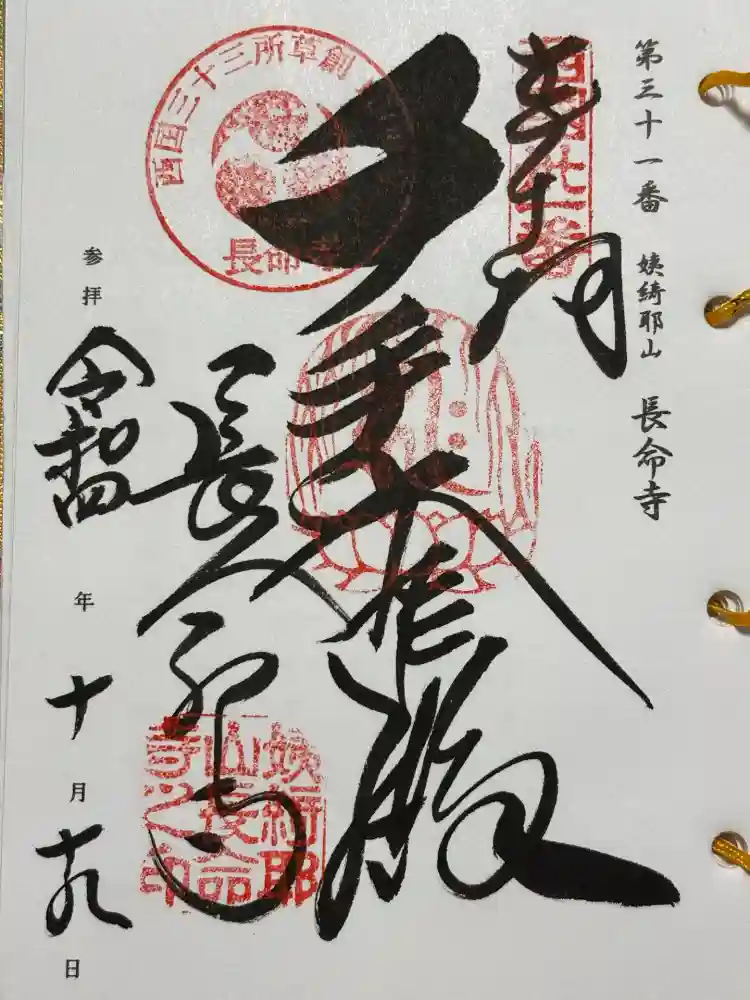 第三十一番 姨綺耶山 長命寺
奉拝
西国丗一番
千手大悲殿
西国三十三所草創
長命寺
長命寺
姨綺耶
山長命
寺之印
参拝 令和四年十月十九日